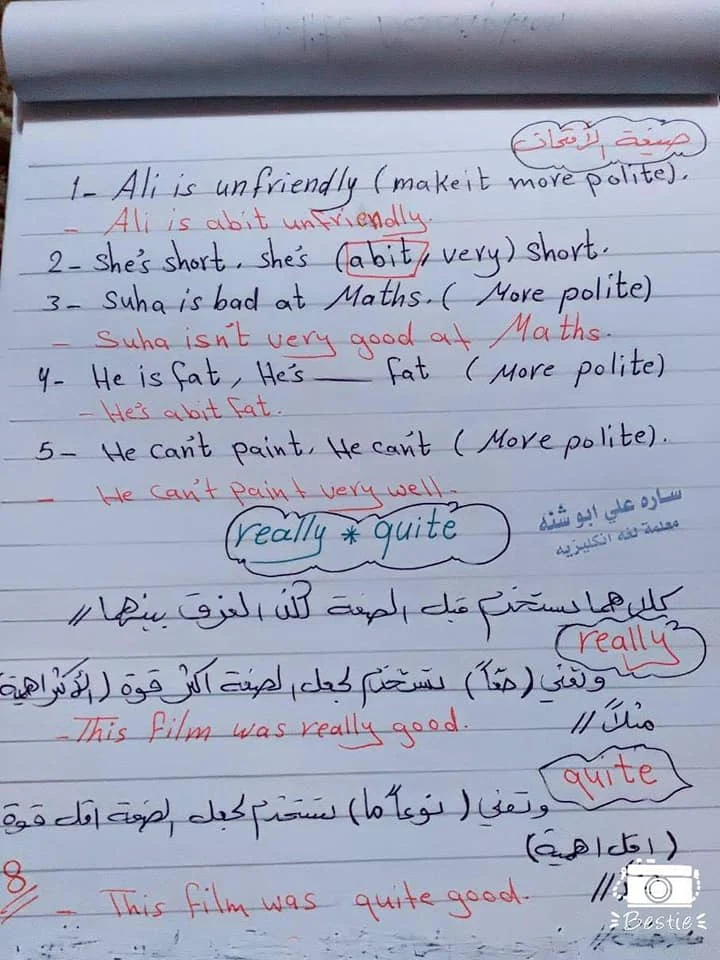 صيغة الأمتحان
1- Ali is unfriendly (make it more polite).
- Ali is abit unfriendly.
2- She's short, she's (abit, very) short.
3- Suha is bad at Maths. (More polite)
- Suha isn't very good at Maths.
4- He is fat, He's ___ fat (More polite)
- He's abit fat.
5- He can't paint, He can't (More polite).
- He can't paint very well.
ساره علي ابو شنه
معلمة لغه انكليزيه
really * quite
كلاهما يستخدم قبل الصفة لكن الفرق بينهما //
really
وتعني (حقاً) تستخدم لجعل الصفة اكثر قوة (الأكثر اهمية
مثلاً //
- This film was really good.
quite
وتعني (نوعاً ما) تستخدم لجعل الصفة اقل قوة
(اقل اهمية)
//
8
- This film was quite good.
Bestie